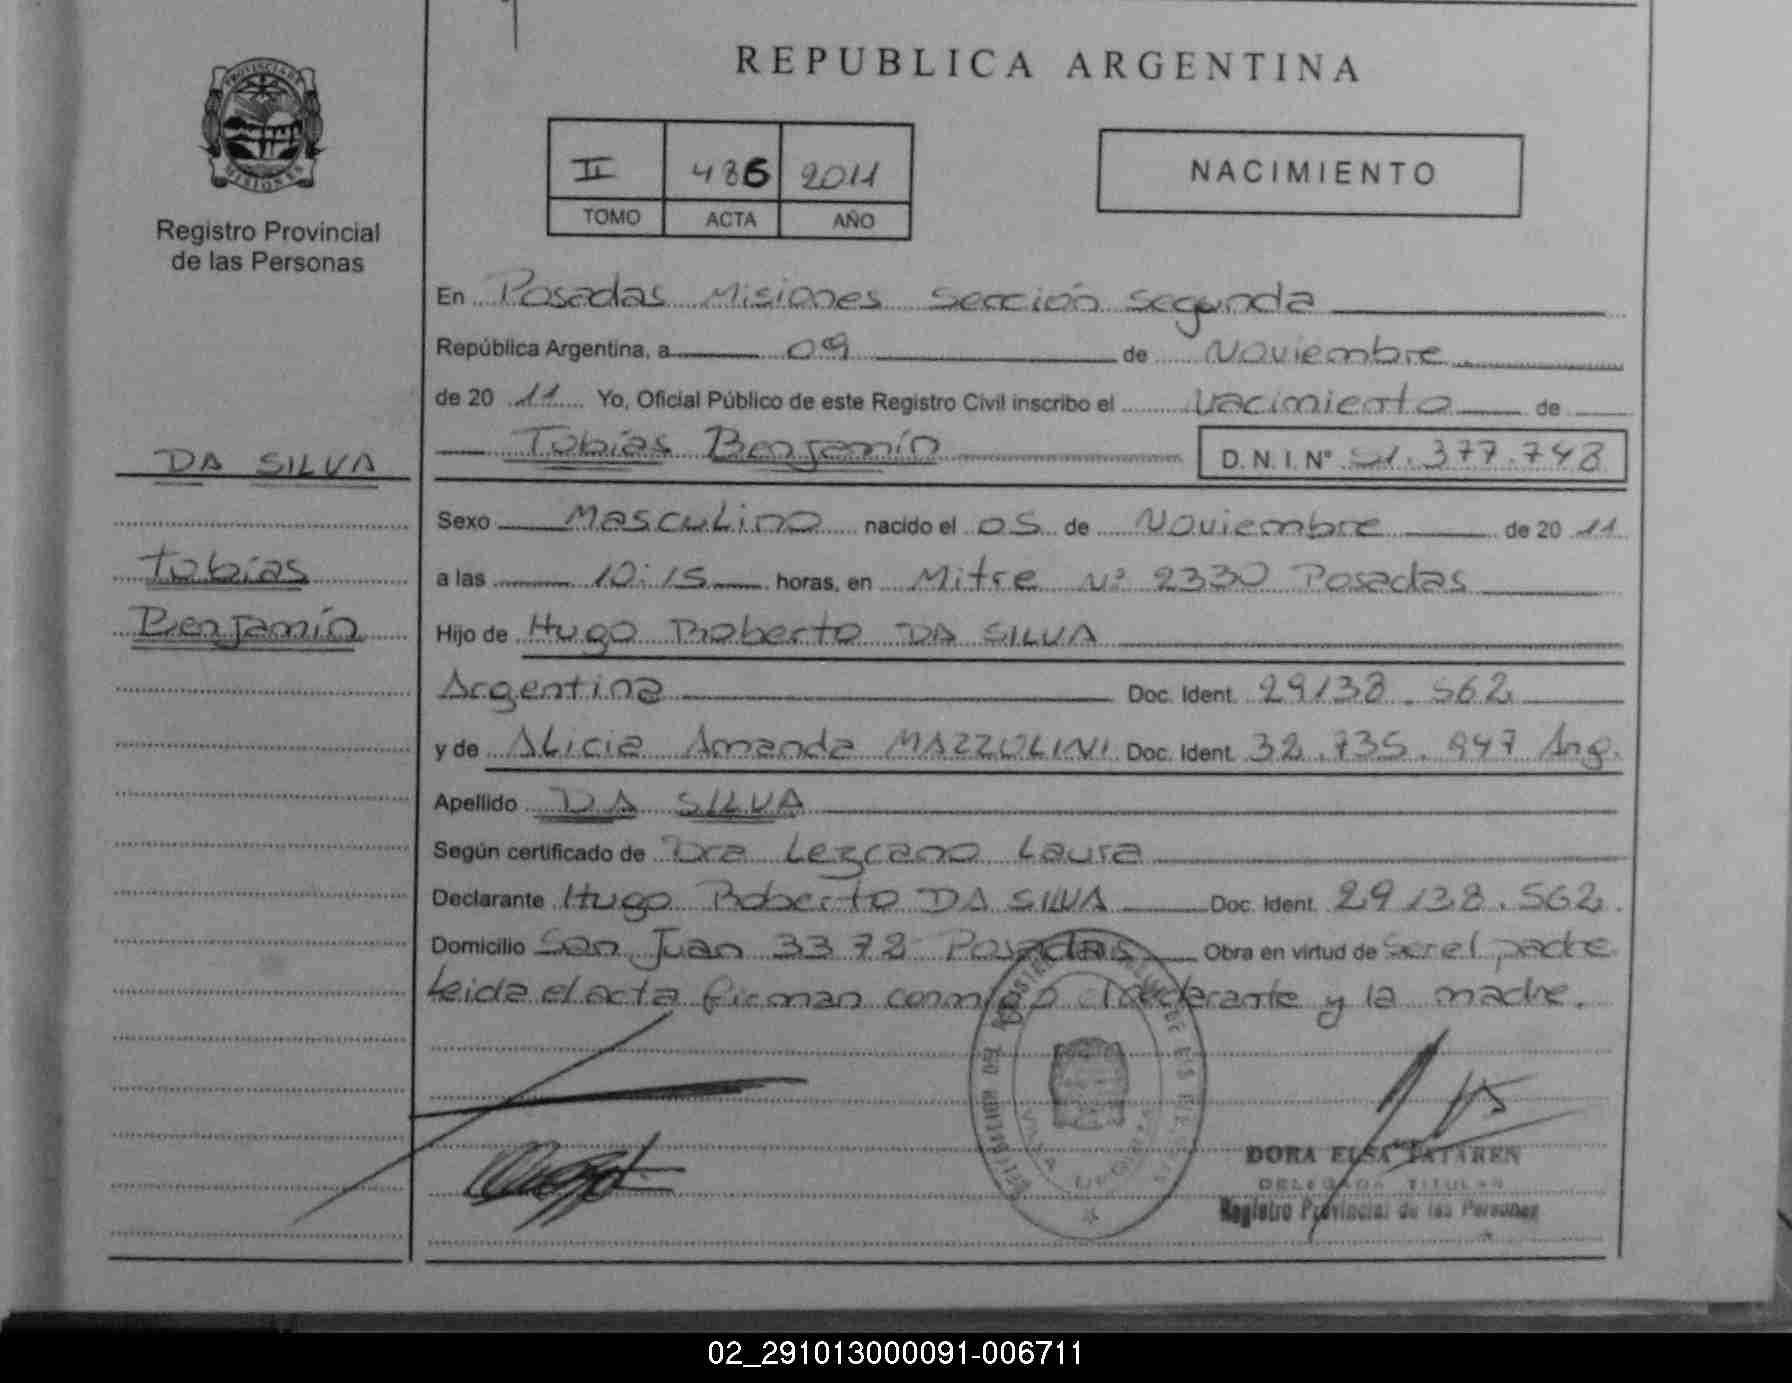 PROVINCIA DE
MISIONES
Registro Provincial
de las Personas
DA SILVA
Tobías
Benjamín
REPUBLICA ARGENTINA
II 486 2011
TOMO ACTA AÑO
NACIMIENTO
En Posadas Misiones Sección Segunda
República Argentina, a 09 de Noviembre
de 20 11 Yo, Oficial Público de este Registro Civil inscribo el Nacimiento de
Tobías Benjamín D. N. I. Nº 51.377.748
Sexo Masculino nacido el 05 de Noviembre de 20 11
a las 10:15 horas, en Mitre Nº 2330 Posadas
Hijo de Hugo Roberto DA SILVA
Argentina Doc. Ident. 29138.562
y de Alicia Amanda MAZZOLINI Doc. Ident. 32.735.947 Arg.
Apellido DA SILVA
Según certificado de Dra Lezcano Laura
Declarante Hugo Roberto DA SILVA Doc. Ident. 29138.562
Domicilio San Juan 3378 Posadas Obra en virtud de ser el padre
Leida el acta firman conmigo declarante y la madre.
DORA ELSA TATAREN
DELEGADA TITULAR
Registro Provincial de las Personas
02_291013000091-006711